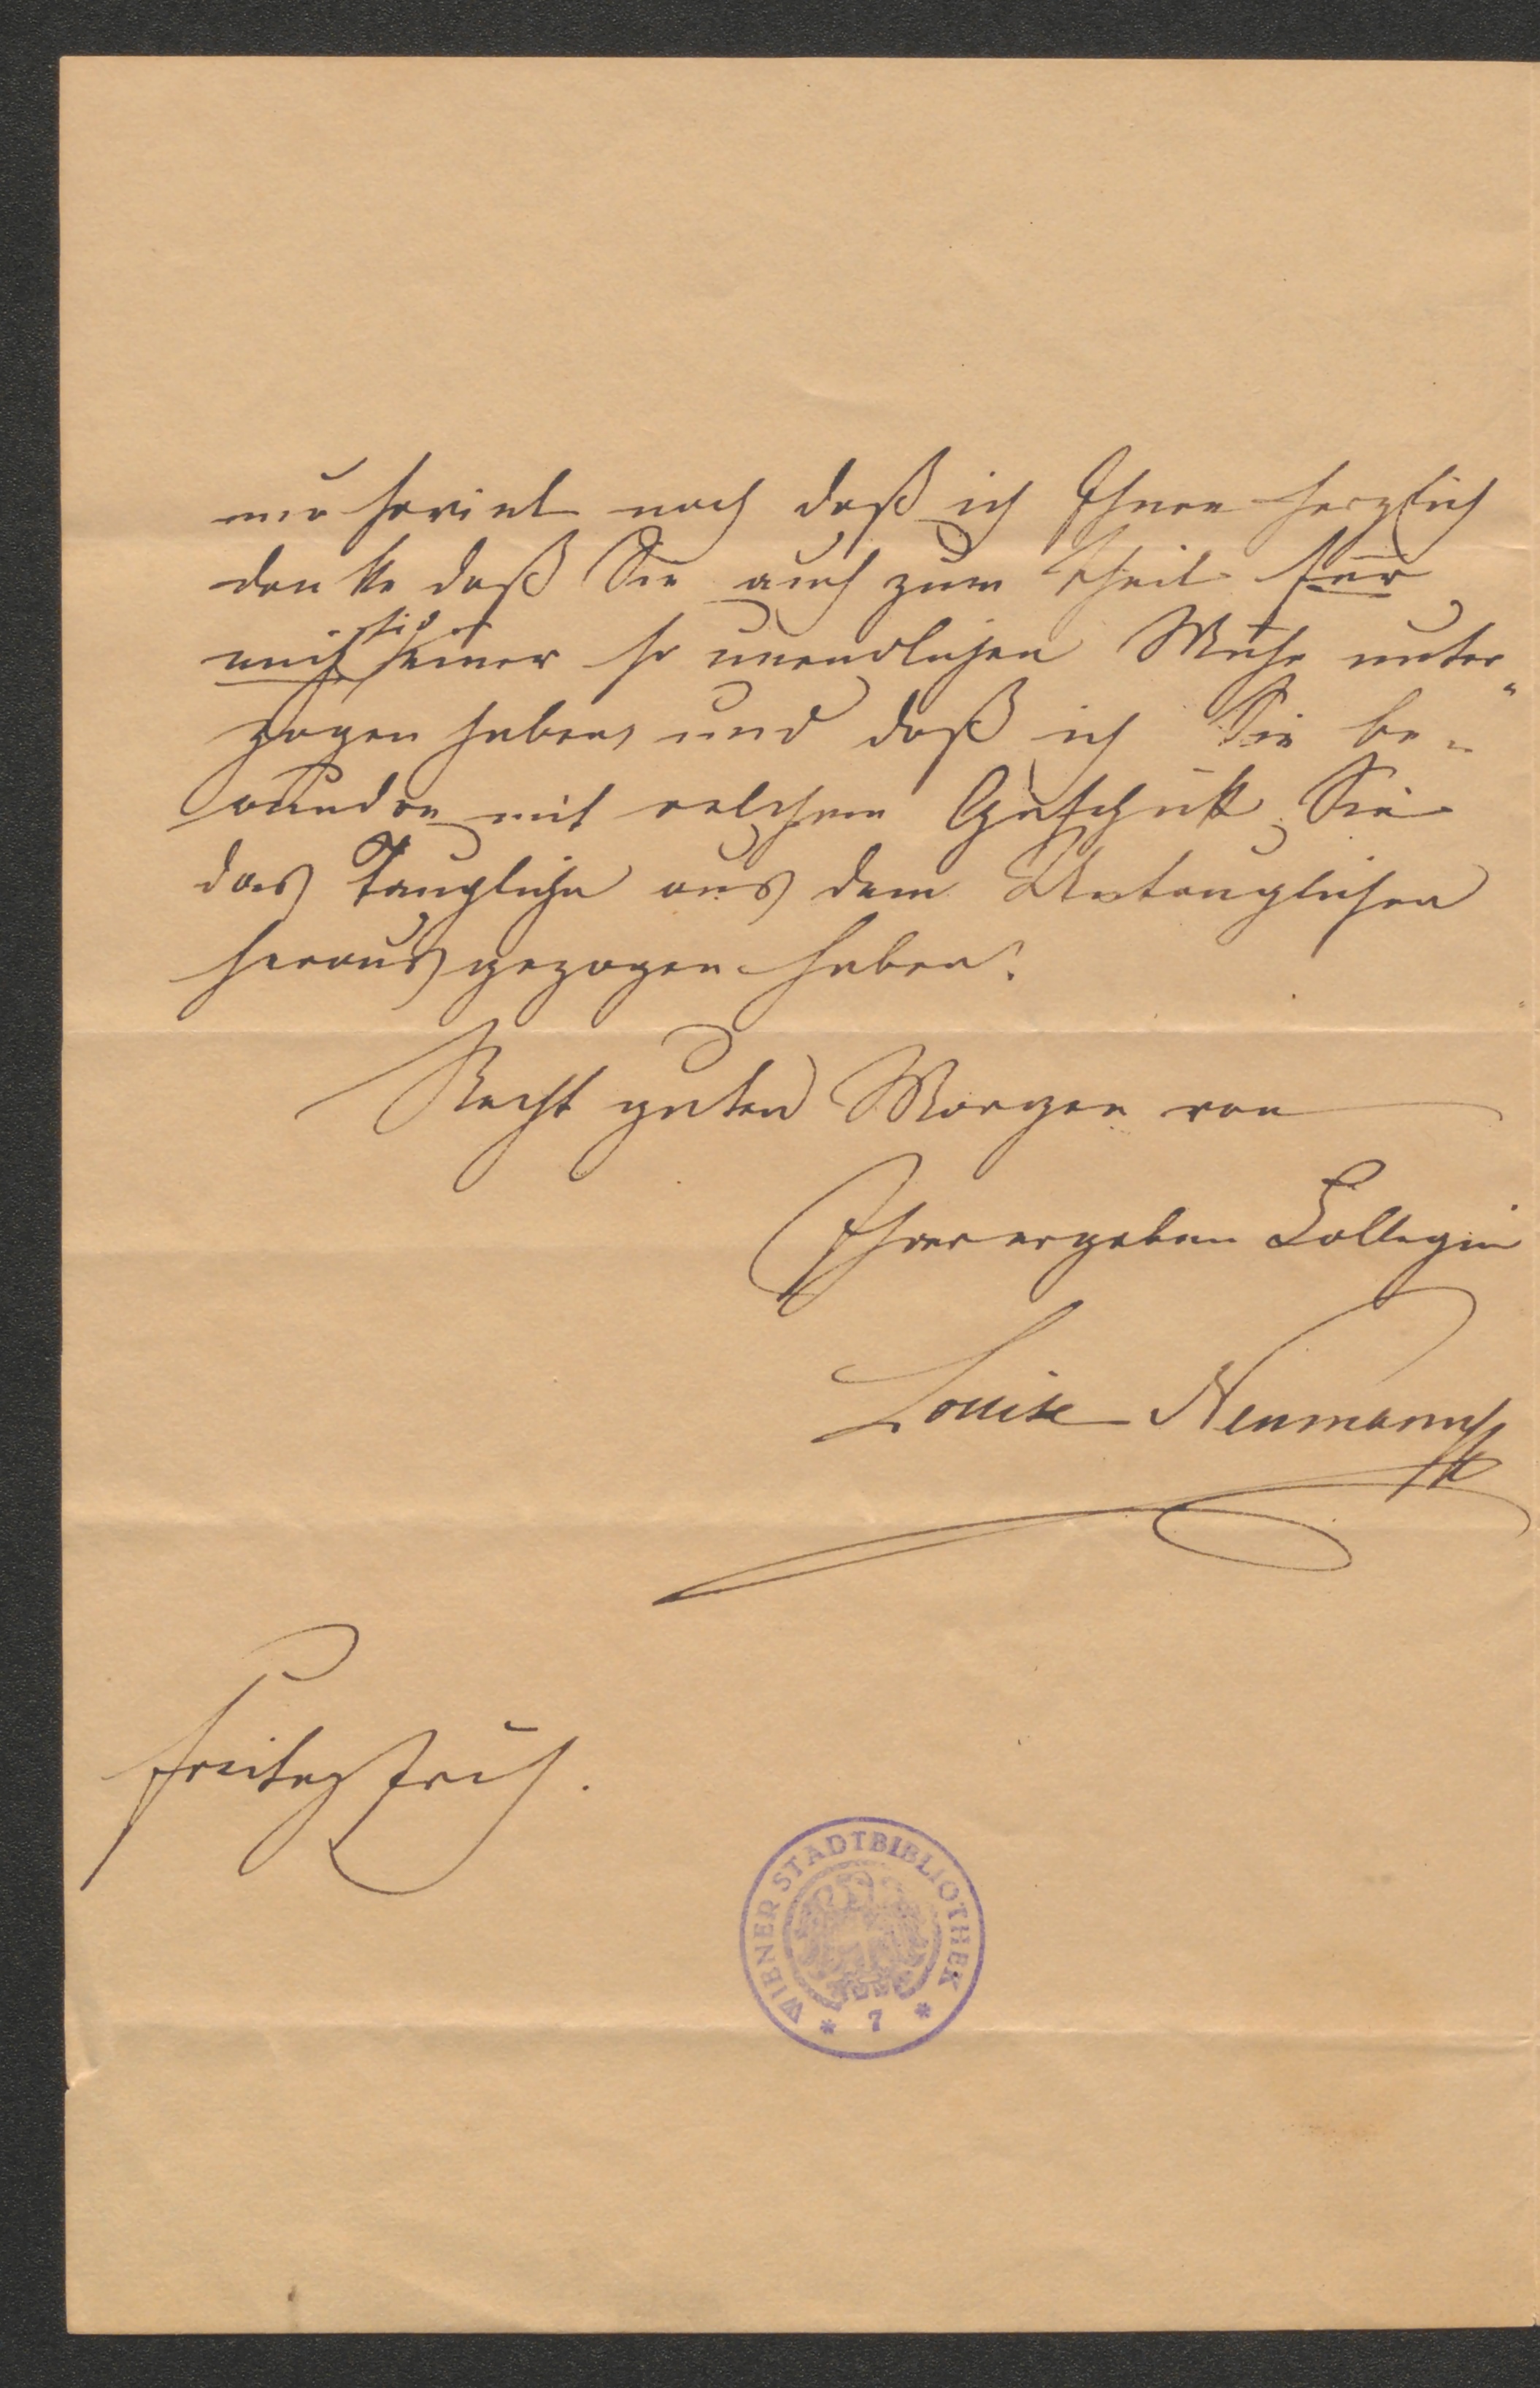 nur soviel noch daß ich Ihnen herzlich
danke daß Sie auch zum Theil für
mich sich einer so unendlichen Mühe unter„
zogen haben, und daß ich Sie be„
wundre mit welchem Geschick Sie
das Taugliche aus dem Untauglichen
heraus gezogen haben.
Recht guten Morgen von
Ihrer ergebenen Collegin
Louise Neumann
Freitag Früh.
WIENER STADTBIBLIOTHEK
* 7 *